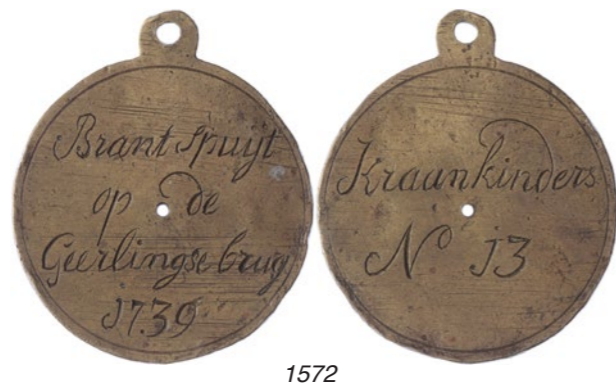 Brant Spuijt
op de
Geerlingse brug
1739
Kraankinders
No 13
1572